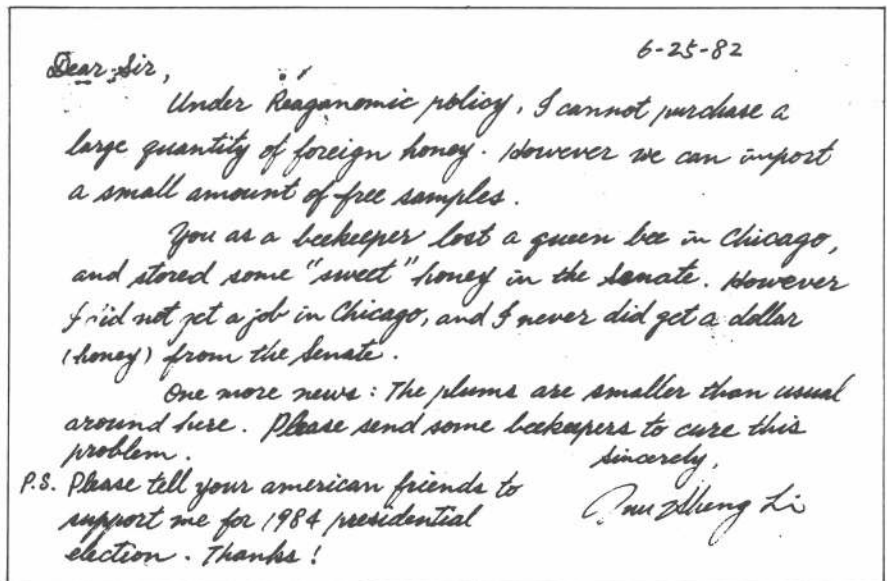 6-25-82
Dear Sir,
Under Reaganomic policy, I cannot purchase a
large quantity of foreign honey. However we can import
a small amount of free samples.
You as a beekeeper lost a queen bee in Chicago,
and stored some "sweet" honey in the Senate. However
I did not get a job in Chicago, and I never did get a dollar
(honey) from the Senate.
One more news: The plums are smaller than usual
around here. Please send some beekeepers to cure this
problem.
Sincerely,
Li
P.S. Please tell your american friends to
support me for 1984 presidential
election. Thanks!